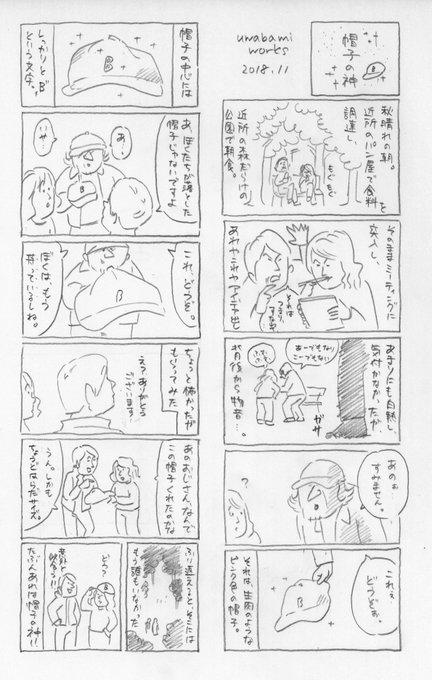 帽子の神
B
uwabami
works
2018.11
秋晴れの朝。
近所のパン屋で食料を
調達し、
近所の森だらけの
公園で朝食。
もぐもぐ
そのままミーティングに
突入し、
それは
つまり
あれやこれやアイデア出し
あまりにも白熱し
気付かなかったが、
あーでもない
こーでもない
ガサ
背後から物音…。
あのぉ
すみません。
?
これぇ
どうぞぉ。
B
それは、生肉のような
ピンク色の帽子。
帽子の中心には
B
しっかりと"B"
という文字。
あ、ぼくたちが落とした
帽子じゃないですよ
あ…
いや…
B
これ、どうぞ。
B
ぼくは、もう
持っているしね。
ちょっと怖かったが
もらってみた
えっありがとう
ございます…
あのおじさん、なんで
この帽子くれたのかな
うん。しかも
ちょうどはらだサイズ。
ふり返ると、そこには
もう誰もいなかった
どう?
意外と
似合う!!
たぶんあれは帽子の神!!